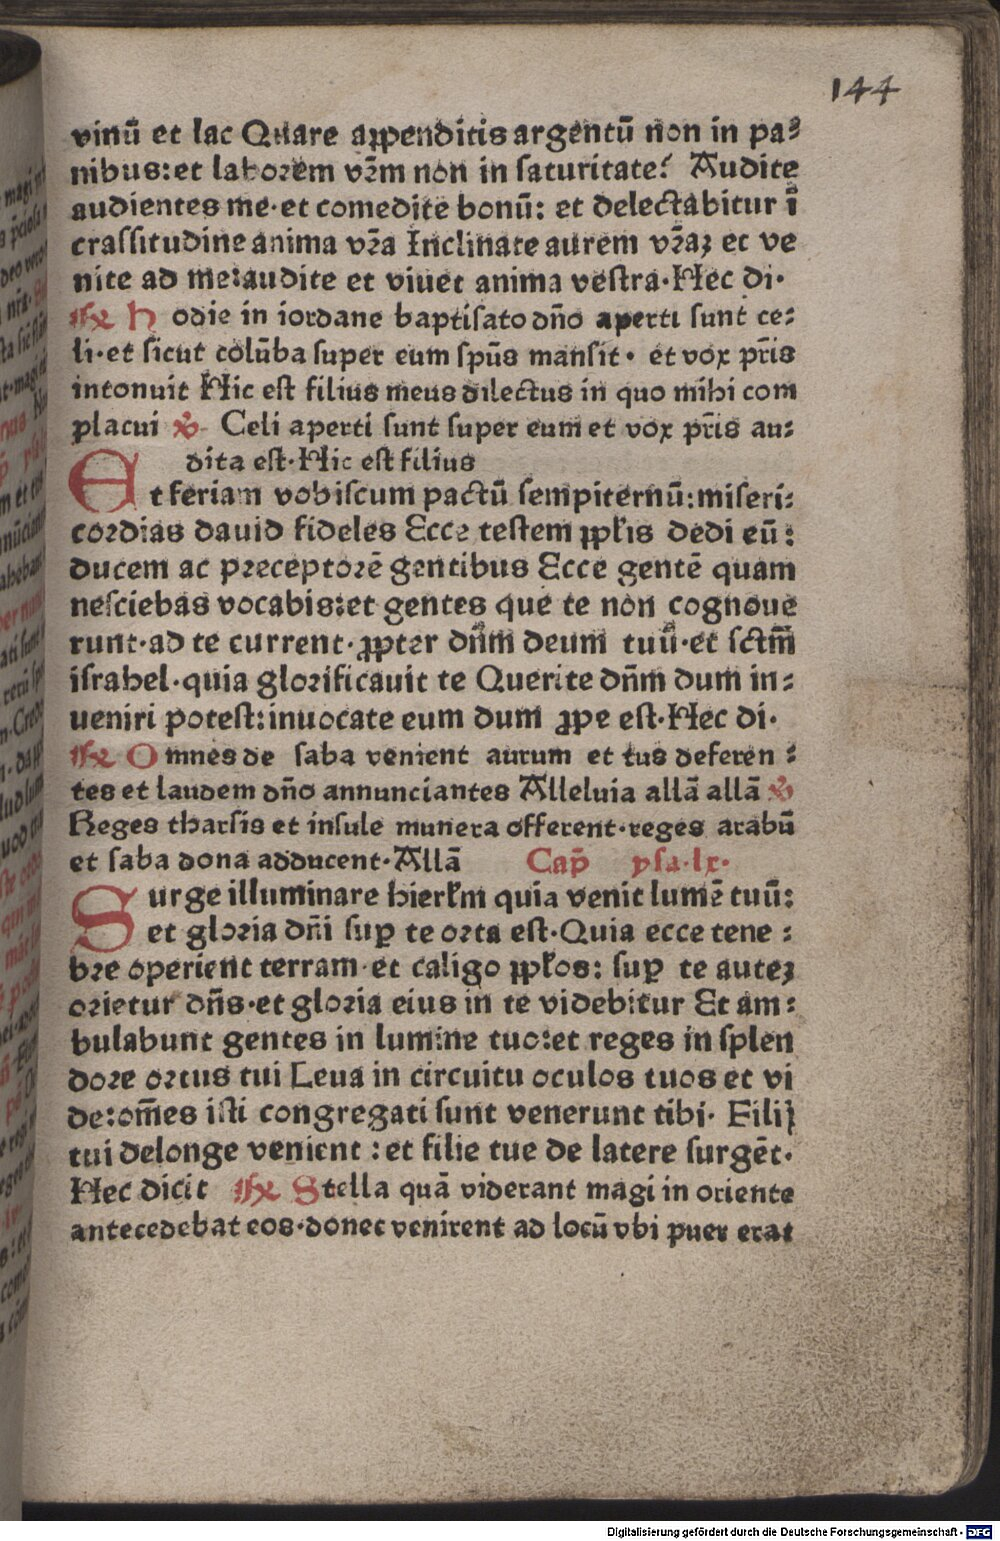 144
vinū et lac Quare aꝓpenditis argentū non in pa⸗
nibus:et laborem vr̄m non in saturitate? Audite
audientes me·et comedite bonū: et delectabitur ī
crassitudine anima vr̄a Inclinate aurem vr̄aꝫ et ve
nite ad me:audite et viuet anima vestra·Hec di·
℟ Hodie in iordane baptisato dn̄o aperti sunt ce⸗
li·et sicut colūba super eum spūs mansit· et vox pr̄is
intonuit Hic est filius meus dilectus in quo mihi com
placui ℣ Celi aperti sunt super eum et vox pr̄is au⸗
dita est·Hic est filius
Et feriam vobiscum pactū sempiternū:miseri⸗
cordias dauid fideles Ecce testem ꝓpl̄is dedi eū:
ducem ac preceptorē gentibus Ecce gentē quam
nesciebas vocabis:et gentes que te non cognoue
runt·ad te current·ꝓpter dn̄m deum tuū·et sctm̄
israhel·quia glorificauit te Querite dn̄m dum in⸗
veniri potest:inuocate eum dum ꝓpe est·Hec di·
℟ Omnes de saba venient aurum et tus deferen⸗
tes et laudem dn̄o annunciantes Alleluia allā allā ℣
Reges tharsis et insule munera offerent·reges arabū
et saba dona adducent·Allā Cap̄ ysa·lx·
Surge illuminare hierl̄m quia venit lumē tuū:
et gloria dn̄i suꝑ te orta est·Quia ecce tene⸗
bre operient terram·et caligo ꝓpl̄os: suꝑ te auteꝫ
orietur dn̄s·et gloria eius in te videbitur Et am⸗
bulabunt gentes in lumine tuo:et reges in splen
dore ortus tui Leua in circuitu oculos tuos et vi
de:om̄es isti congregati sunt venerunt tibi· Filij
tui delonge venient : et filie tue de latere surgēt·
Hec dicit ℟ Stella quā viderant magi in oriente
antecedebat eos·donec venirent ad locū vbi puer erat
Digitalisierung gefördert durch die Deutsche Forschungsgemeinschaft - DFG